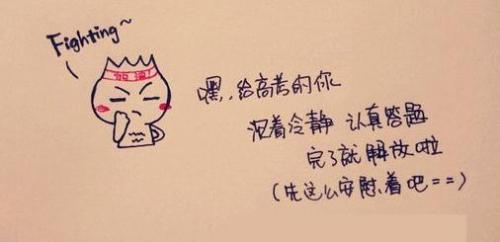 Fighting~
加油!
嘿,,给高考的你
沉着冷静 认真答题
完了就解放啦
(先这么安慰着吧==)